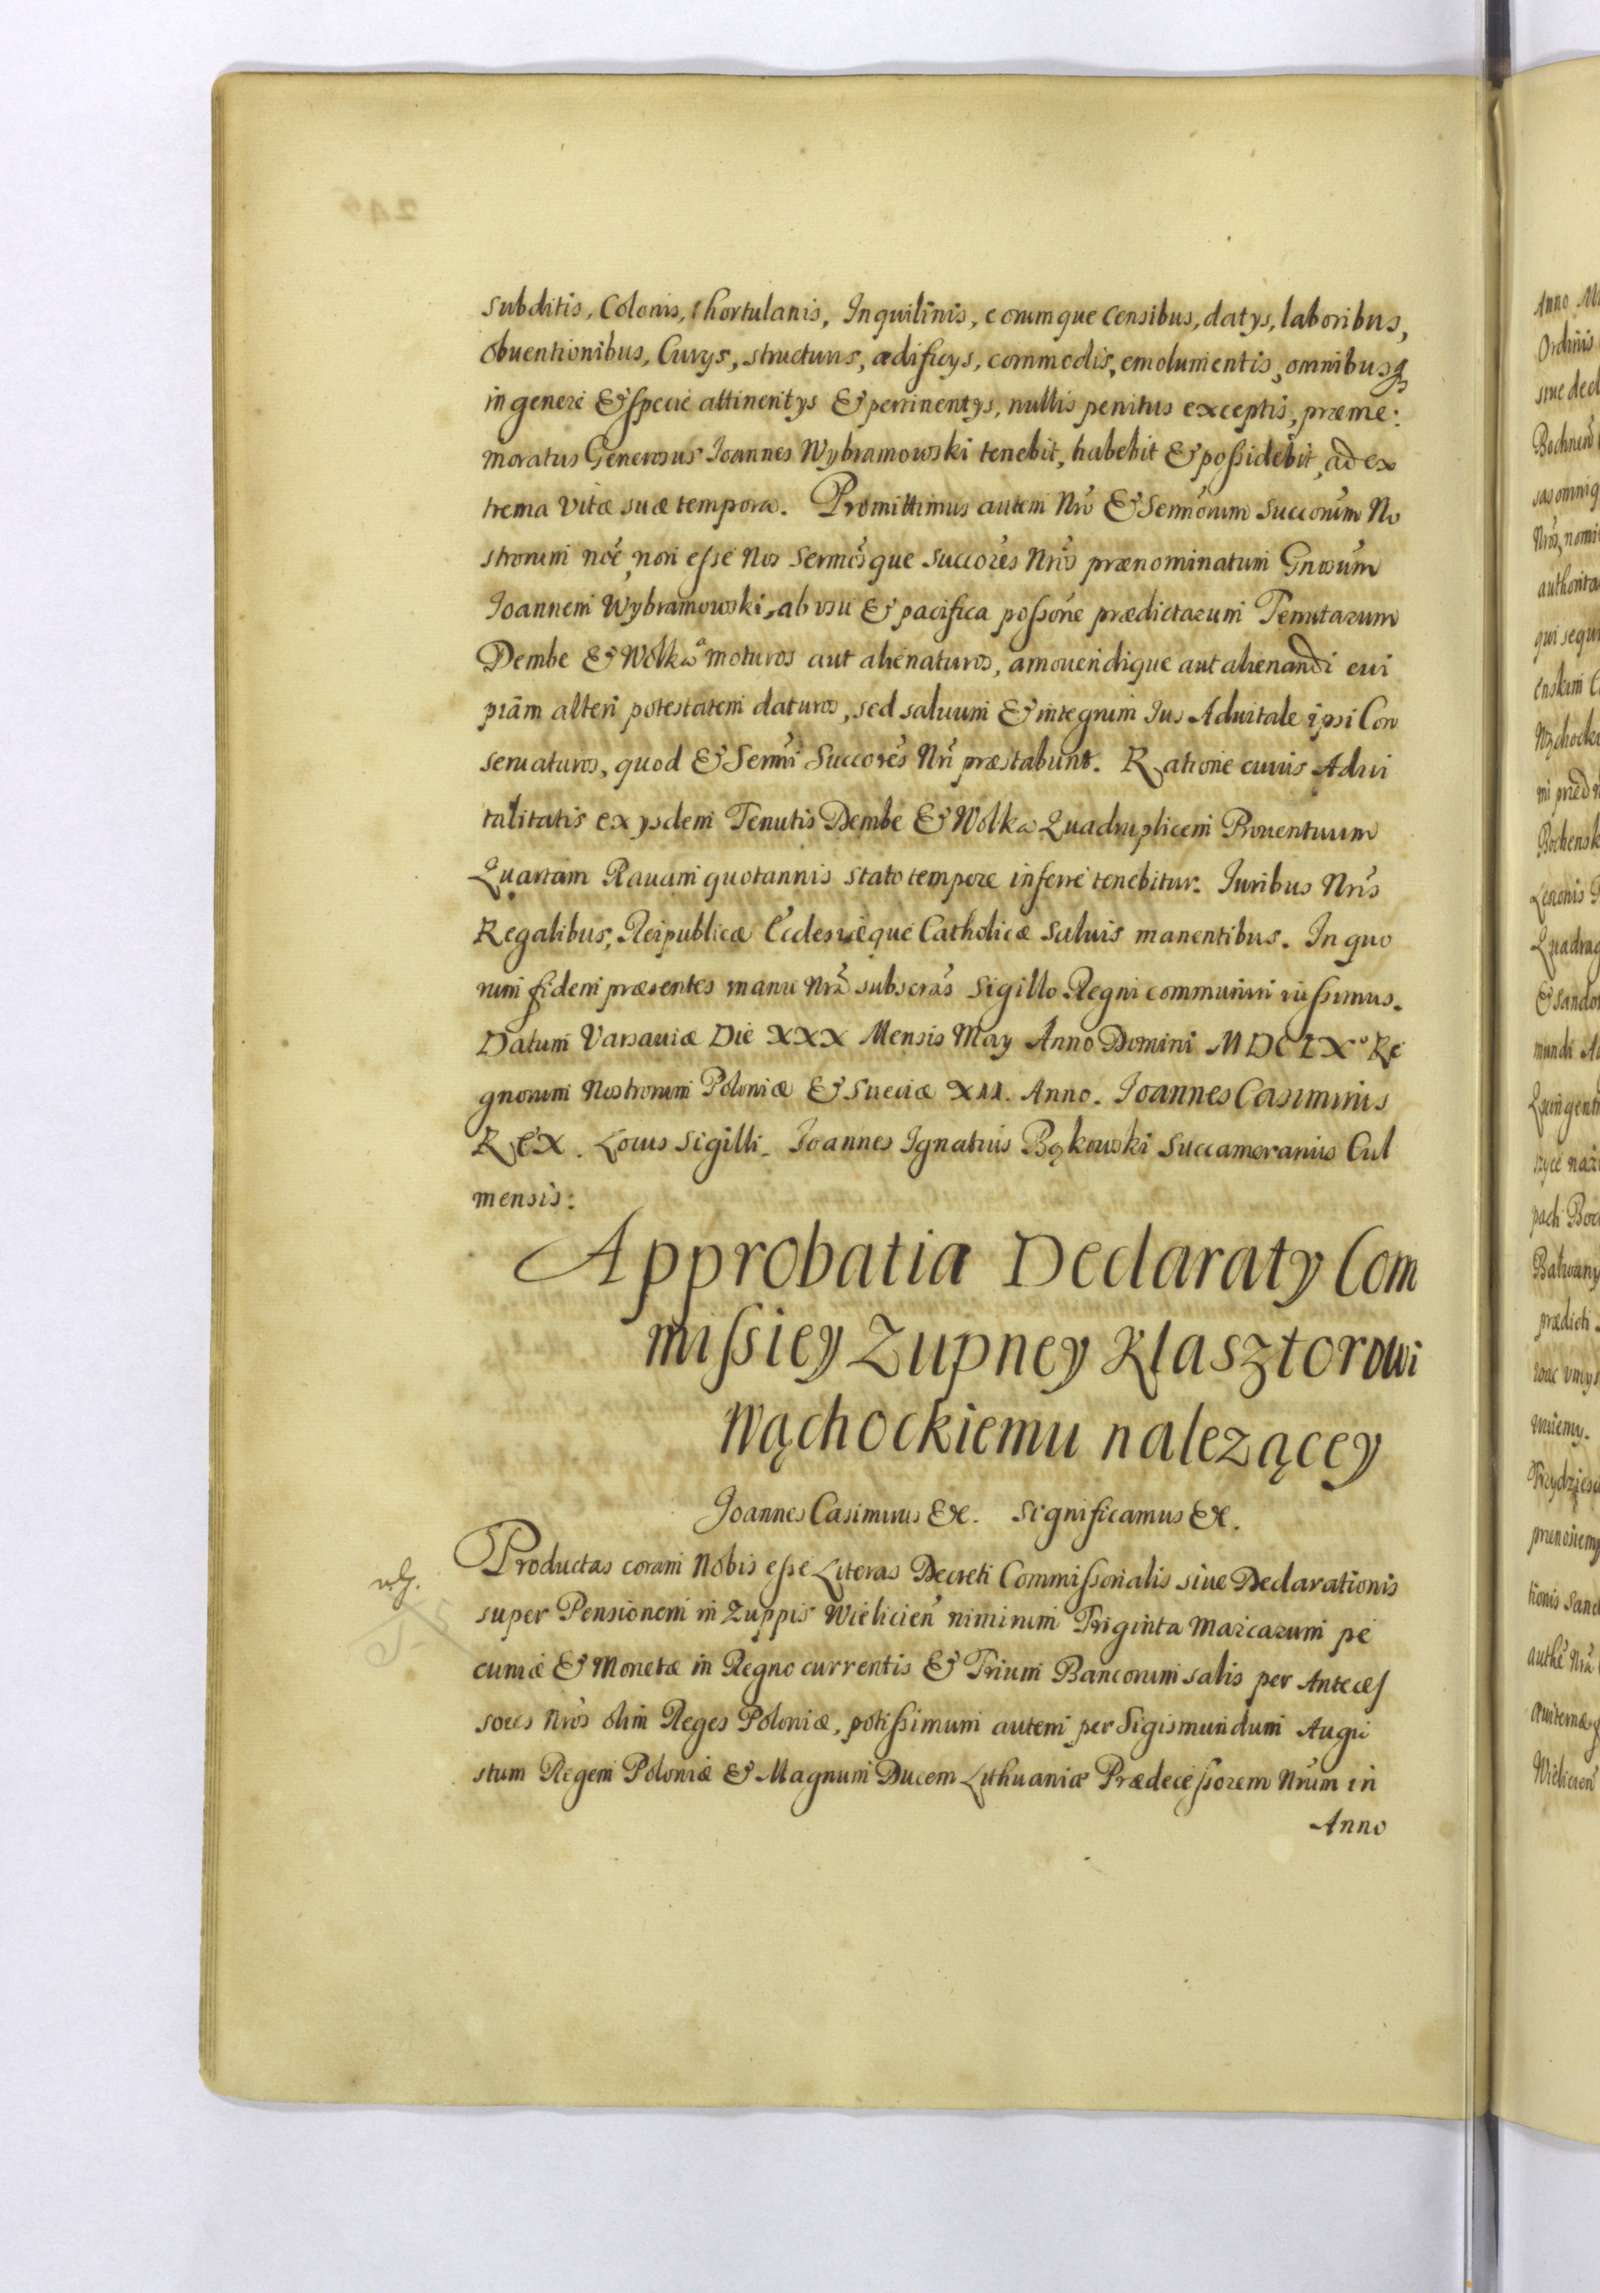 subditis, Colonis, hortulanis, Inquilinis, eorumque Censibus, datys, laboribus,
obuentionibus, Curys, structuris, ædificys, commodis, emolumentis, omnibusq
in genere & specie attinentys & pertinentys, nullis penitus exceptis, præme:
moratus Generosus Ioannes Wybramowski tenebit, habebit & poſsidebit, ad ex
trema vitæ suæ tempora. Promittimus autem Nrō & Sermōrum Succorūm No
strorum noē, non eſse Nos Sermōsque Succorēs Nrōs prænominatum Gnosūm
Ioannem Wybramowski, ab vsu & pacifica poſsōne prædictarum Tenutarum
Dembe & Wolka amoturos aut alienaturos, amouendique aut alienandi cui
piām alteri potestatem daturos, sed saluum & integrum Ius Aduitale ipsi Con
seruaturos, quod & Sermī Succorēs Nrī præstabunt. Ratione cuius Adui
talitatis ex ysdem Tenutis Dembe & Wolka Quadruplicem Prouentuum
Quartam Rauam quotannis stato tempore inferre tenebitur. Iuribus Nrīs
Regalibus, Reipublicæ Ecclesiæque Catholicæ saluis manentibus. In quo
rum fidem præsentes manu Nrā subscrās Sigillo Regni communiri iuſsimus.
Datum Varsauiæ Die XXX Mensis May Anno Domini MDCLX° Re
gnorum Nostrorum Poloniæ & Sueciæ XII. Anno. Ioannes Casimirus
REX. Locus Sigilli. Joannes Ignatius Bąkowski Succamerarius Cul
mensis:
Approbatia Declaraty Com
miſsiey Zupney Klasztorowi
Wąchockiemu nalezącey
Joannes Casimirus &c. Significamus &c.
Productas coram Nobis eſse Literas Decreti Commiſsorialis siue Declarationis
super Pensionem in Zuppis Wieliciēn nimirum Triginta Marcarum pe
cuniæ & Monetæ in Regno currentis & Trium Bancorum salis per Anteceſ
sores Nrōs olim Reges Poloniæ, potiſsimum autem per Sigismundum Augu
stum Regem Poloniæ & Magnum Ducem Lithuaniæ Prædeceſsorem Nrūm in
Anno